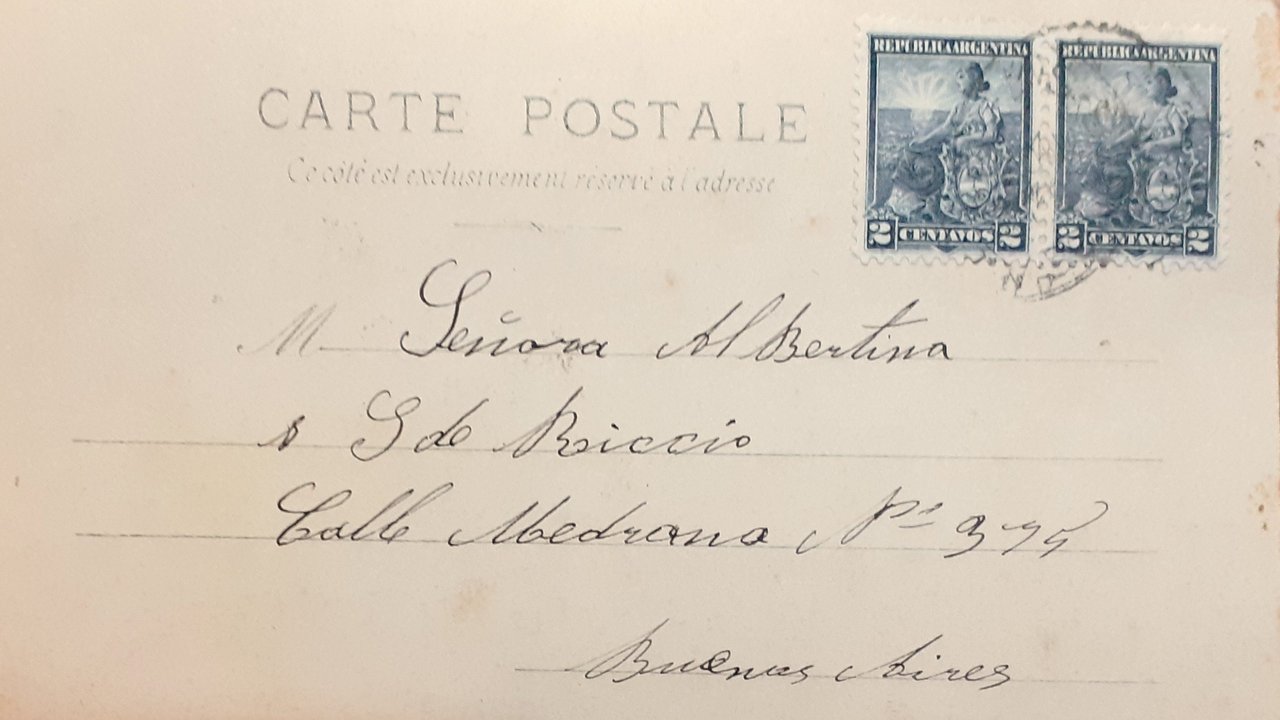 REPUBLICA ARGENTINA REPUBLICA ARGENTINA
2 CENTAVOS 2 2 CENTAVOS 2
CARTE POSTALE
Ce côté est exclusivement réservé à l'adresse
M Señora AlBertina
S de Riccio
Calle Medrano Nº 375
Buenos Aires